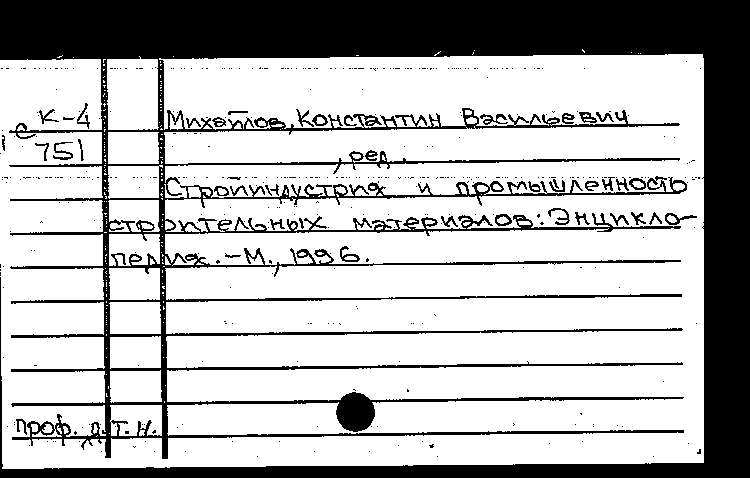 с К-4
751
Михайлов, Константин Васильевич
, ред.
Стройиндустрия и промышленность
строительных материалов: Энцикло-
педия. - М., 1996.
проф. д.т.н.